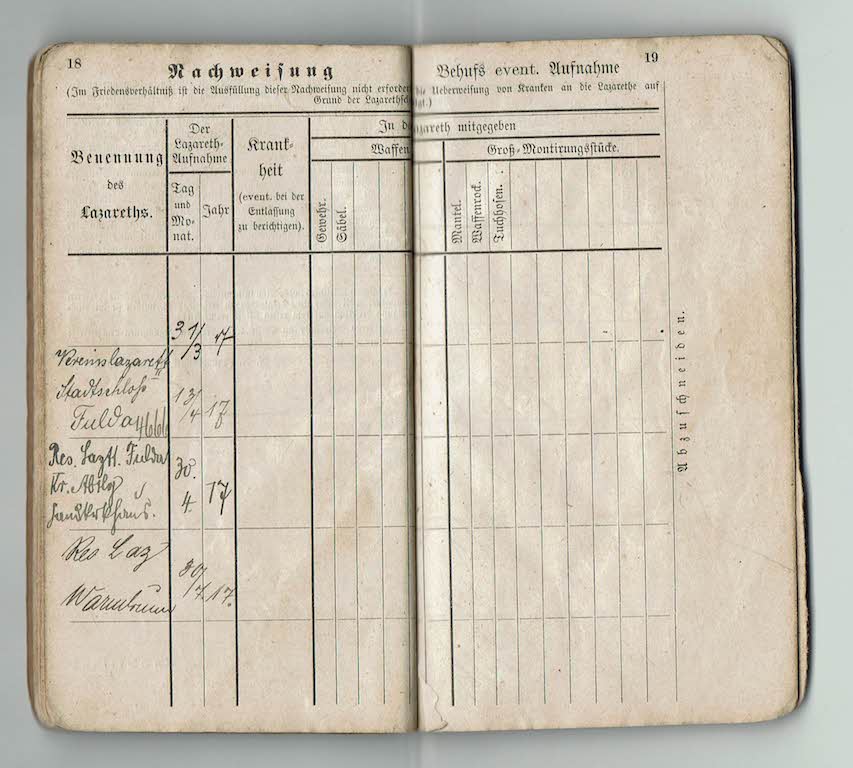 18
Nachweisung
(Im Friedensverhältniß ist die Ausfüllung dieser Nachweisung nicht erforder
Grund der Lazarethsch
Benennung
des
Lazareths.
Der
Lazareth-
Aufnahme
Tag
und
Mo-
nat.
Jahr
Krank-
heit
(event. bei der
Entlassung
zu berichtigen).
In d
Waffen
Gewehr.
Säbel.
31/3 17
Vereinslazarett
Stadtschloß
Fulda 13/4 17
Res. Laztt. Fulda
30.
4. 17
Landkrkhaus.
Res Laz
Warmbrunn
30/7. 17.
19
Behufs event. Aufnahme
die Ueberweisung von Kranken an die Lazarethe auf
lgt.)
azareth mitgegeben
Groß-Montirungsstücke.
Mantel.
Waffenrock.
Tuchhosen.
Abzuschneiden.